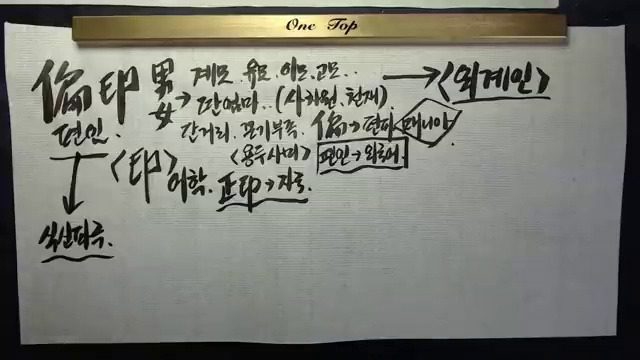 One Top
偏印 男女 계모. 유모. 이모. 고모.. → <외계인>
편인. → 딴엄마.. (사차원. 천재)
단거리. 끈기부족. 偏→편파 매니아
<용두사미> 편인→외국어.
<印> 어학. 正印→자국.
식신파극.